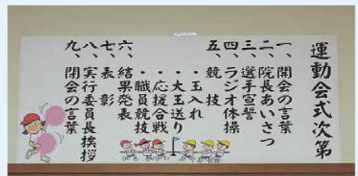 運動会式次第
一、開会の言葉
二、院長あいさつ
三、選手宣誓
四、ラジオ体操
五、競技
・玉入れ
・大玉送り
・応援合戦
・職員競技
六、結果発表
七、表彰
八、実行委員長挨拶
九、閉会の言葉